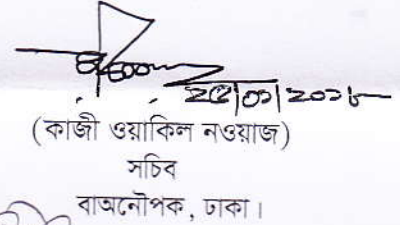 ২৫/০১/২০১৮
(কাজী ওয়াকিল নওয়াজ)
সচিব
বাঅনৌপক, ঢাকা।